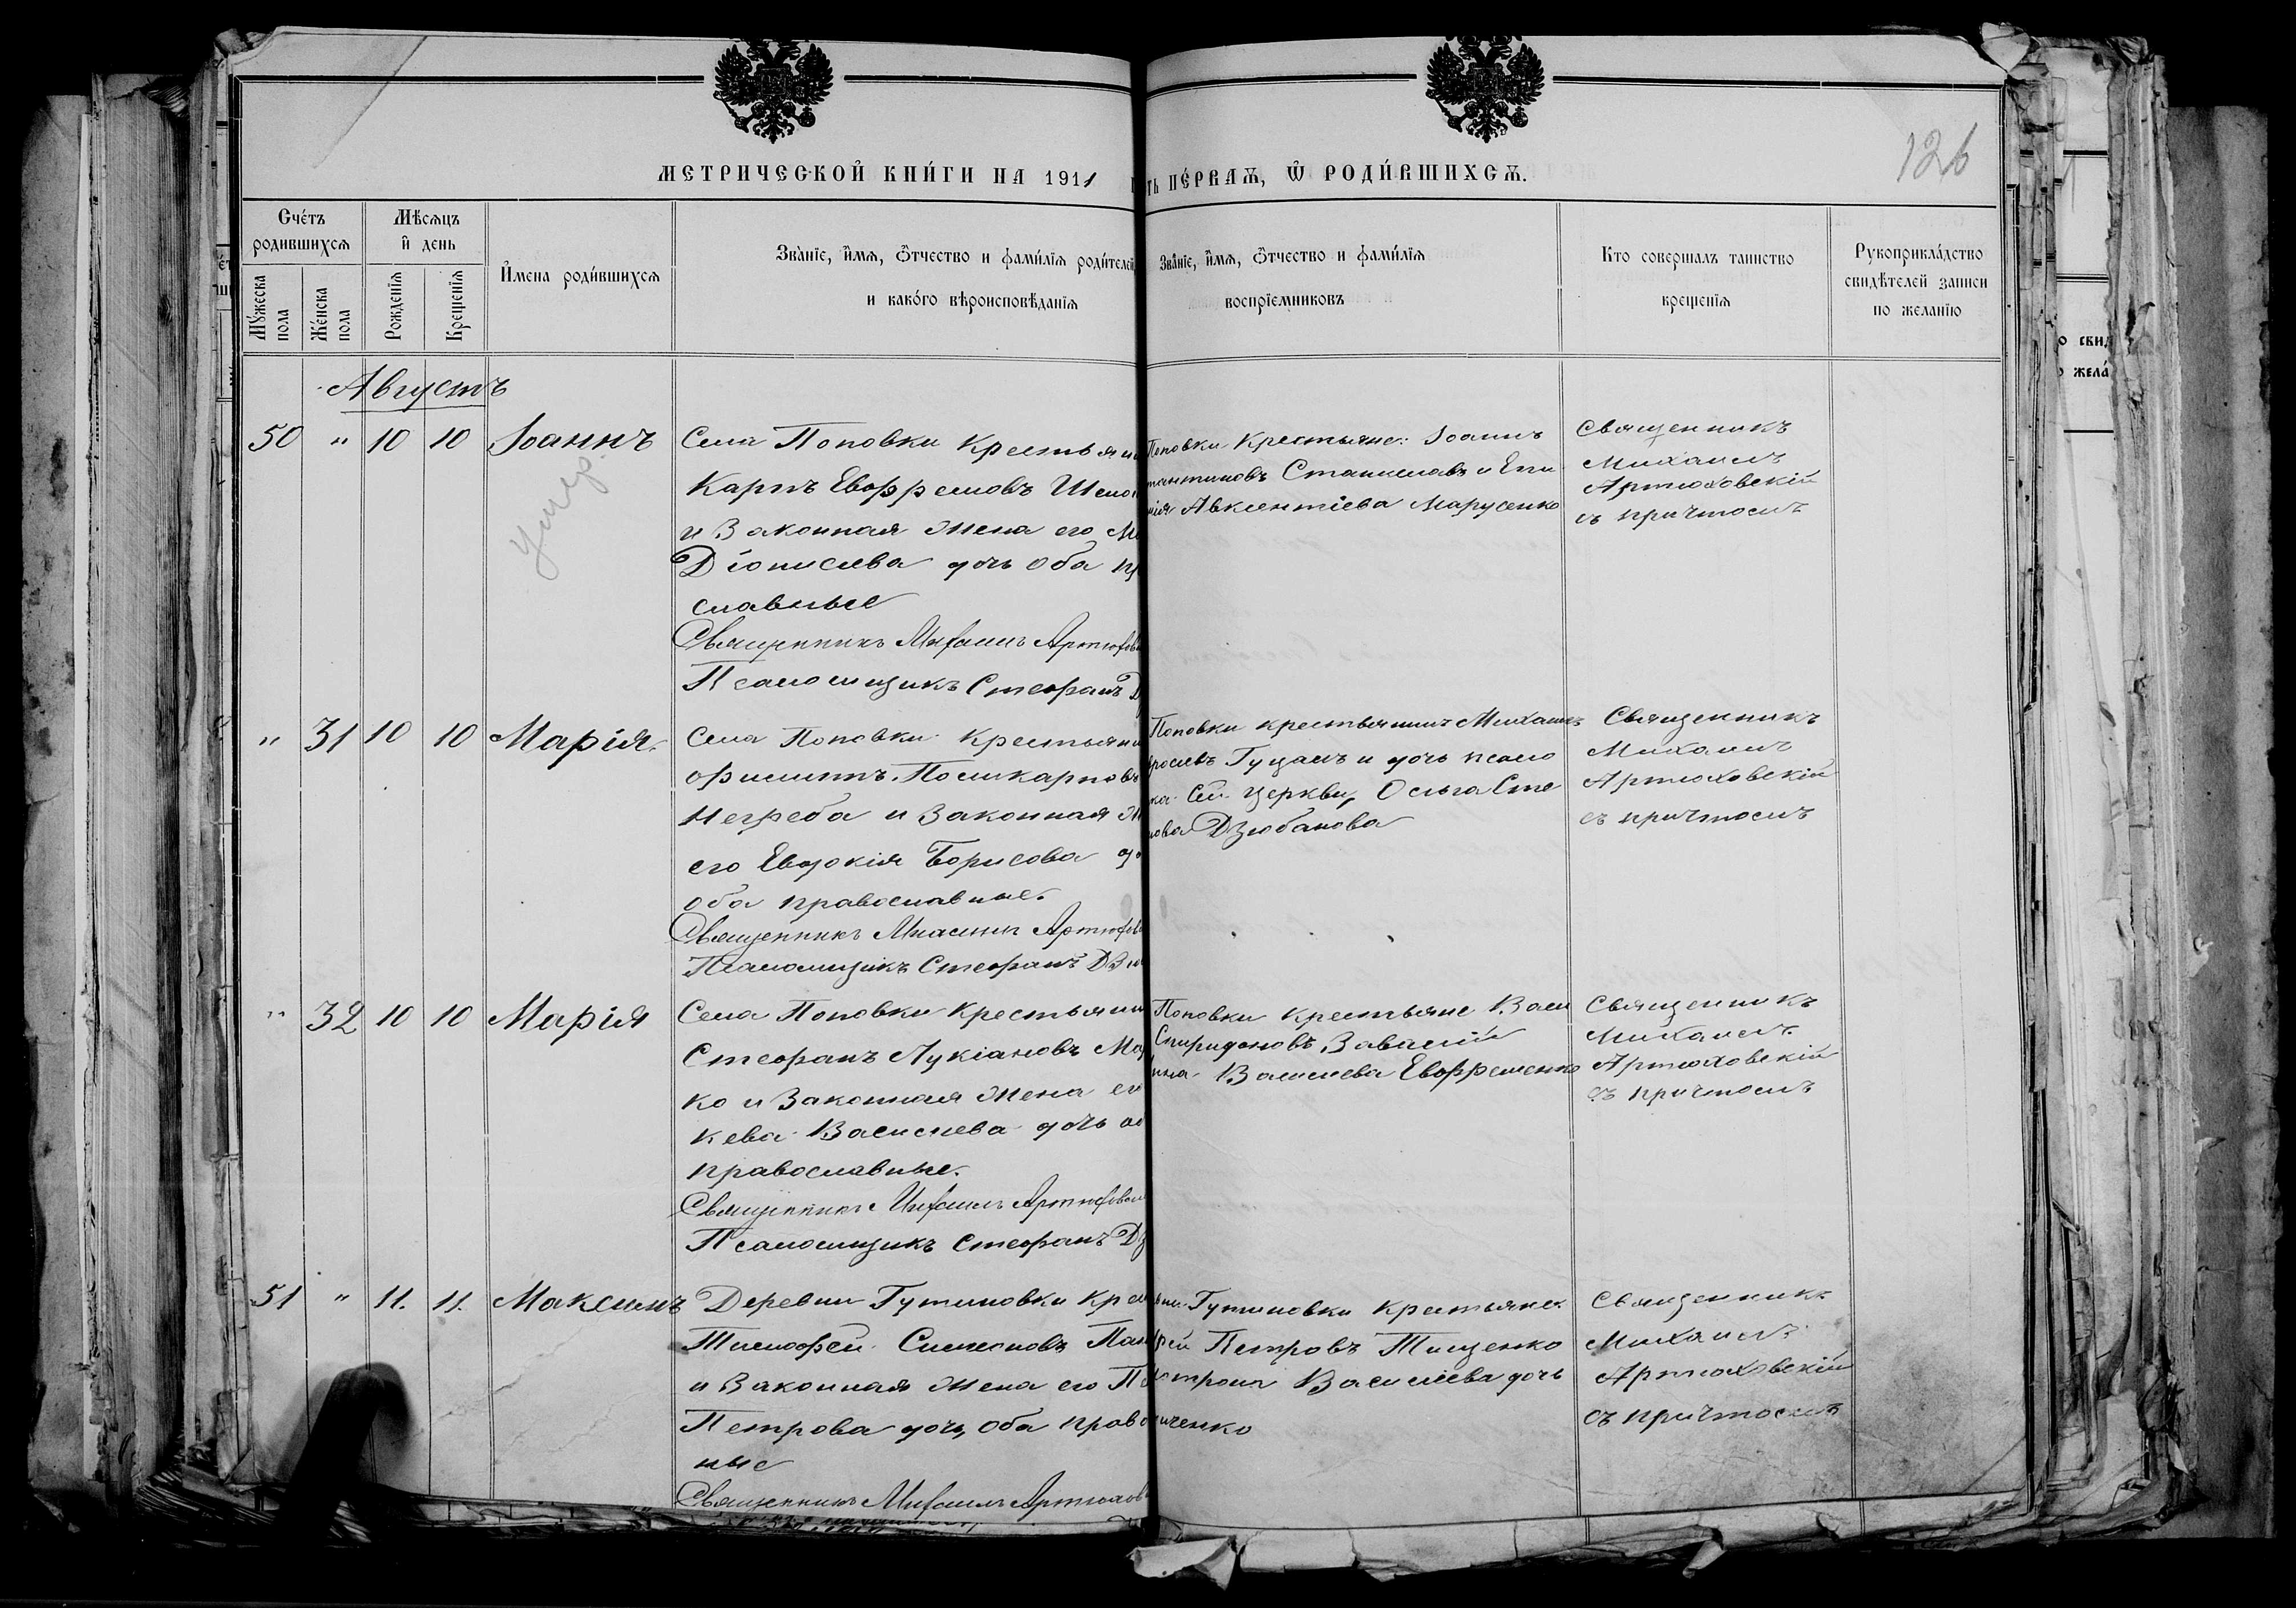 126
МЕТРИЧЕСКОЙ КНИ́ГИ НА 1911
ть пе́рваѧ, ѡ҆ роди́вшихсѧ.
Сче́тъ родившихсѧ
Мѣсѧцъ и҆ день
Му́жеска пола
Же́нска пола
Рожденїѧ
Крещенїѧ
И҆мена роди́вшихсѧ
Зва́нїе, и҆мѧ, ѻ҆тчество и фами́лїѧ роди́телей,
и како́го вѣроисповѣданїѧ
Зва́нїе, и҆мѧ, ѻ҆тчество и фами́лїѧ
воспрїемниковъ
Кто совершалъ таинство
крещенїѧ
Рукоприкла́дство
свидѣтелей записи
по желанїю
Августъ
50 " 10 10 Іоаннъ
умер.
Села Поповки Крестьянин
Карпъ Евфремовъ
и Законная жена его
Діонисіева дочь оба пра
славные
Священникъ Михаилъ Артюхов
Псаломщикъ Стефанъ
Поповки Крестьяне: Іоаннъ
тантиновъ Станиславъ и Епи
нія Авксентіева Марусенко
Священникъ
Михаилъ
Артюховскій
съ причтомъ
" 31 10 10 Марія.
Села Поповки Крестьянин
Филиппъ Поликарповъ
Негреба и Законная
его Евдокія Борисова до
оба православные.
Священникъ Михаилъ Артюхов
Псаломщикъ Стефанъ Дзю
Поповки крестьянинъ Михаилъ
Гуцалъ и дочь псало
ка сей церкви, Ольга Сте
нова Дзюбанова
Священникъ
Михаилъ
Артюховскій
съ причтомъ
" 32 10 10 Марія
Села Поповки Крестьянин
Стефанъ Лукіановъ Мар
ко и Законная жена ег
кева Васильева дочь об
православные.
Священникъ Михаилъ Артюховск
Псаломщикъ Стефанъ Дз
Поповки Крестьяне Васи
Спиридоновъ Завалій
ина Васильева Евфременко
Священникъ
Михаилъ
Артюховскій
съ причтомъ
51 " 11. 11. Максимъ
Деревни Гутиновки Крес
Тимофей Симеоновъ Пан
и Законная жена его П
Петрова дочь, оба право
ные
Священникъ Михаилъ Артюхов
вни Гутиновки Крестьяне
рей Петровъ Тищенко
Васильева дочь
иченко
Священникъ
Михаилъ
Артюховскій
съ причтомъ